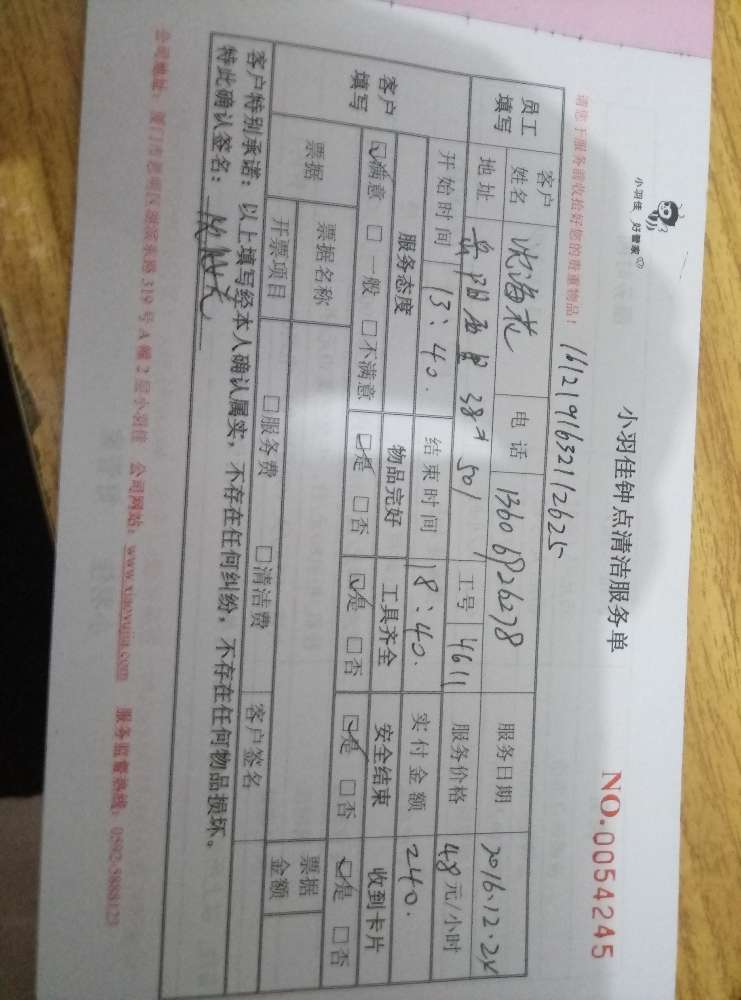 小羽佳 好管家
小羽佳钟点清洁服务单
NO.0054245
请您于服务前收拾好您的贵重物品!
1612191632112625
员工填写 客户姓名 沈海花 电话 13606926278 服务日期 2016.12.2
地址 岳阳 38# 501 工号 4611 服务价格 48元/小时
客户填写 开始时间 13:40. 结束时间 18:40. 实付金额 240.
服务态度 物品完好 工具齐全 安全结束 收到卡片
☑满意 □一般 □不满意 ☑是 □否 ☑是 □否 ☑是 □否 ☑是 □否
票据 票据名称 □服务费 □清洁费 客户签名 票据金额
开票项目
客户特别承诺:以上填写经本人确认属实,不存在任何纠纷,不存在任何物品损坏。
特此确认签名:
公司地址:厦门市思明区湖滨东路319号A幢2层小羽佳 公司网站:www.xiaoyujia.com 服务监督热线:0592-5888123